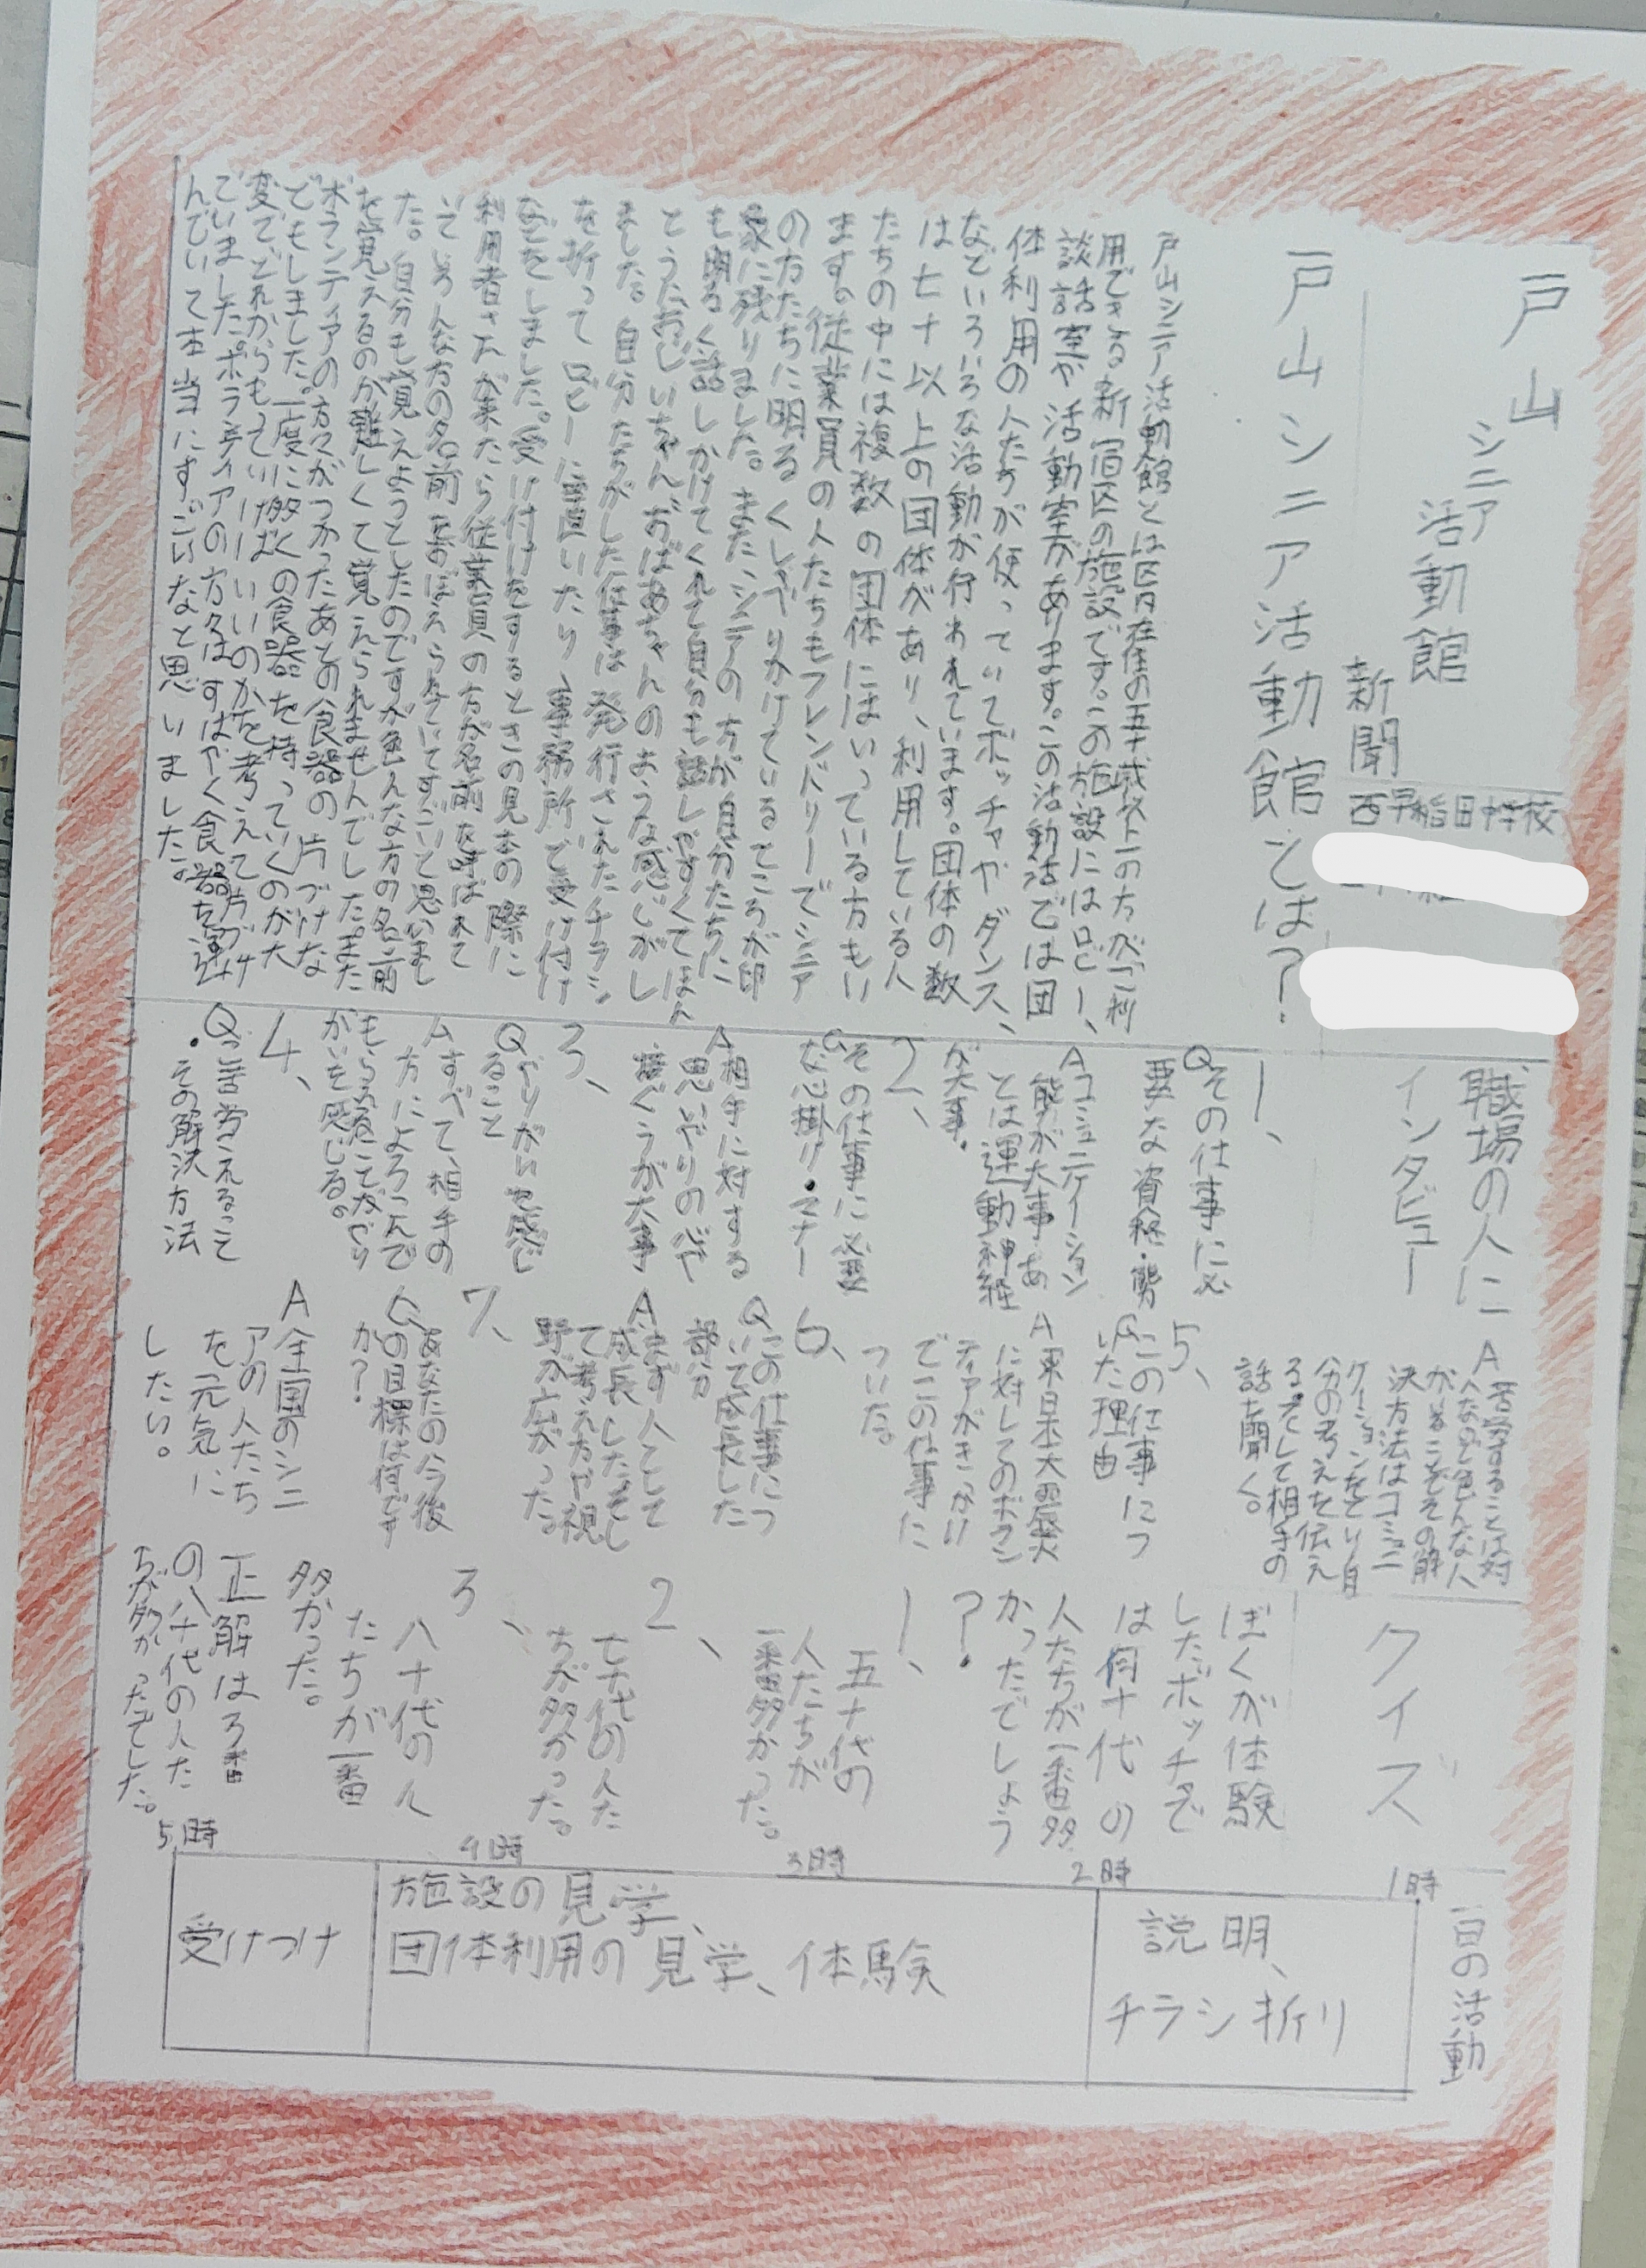 戸山
シニア
活動館
新聞
西早稲田中学校
戸山シニア活動館とは?
戸山シニア活動館とは区内在住の五十歳以上の方が利
用できる新宿区の施設です。この施設にはロビー、
談話室や活動室があります。この活動活では団
体利用の人たちが使っていてボッチャやダンス、
などいろいろな活動が行われています。団体の数
は七十以上の団体があり、利用している人
たちの中には複数の団体にはいっている方もい
ます。従業員の人たちもフレンドリーでシニア
の方たちに明るくしゃべりかけているところが印
象に残りました。また、シニアの方が自分たちに
も明るく話しかけてくれて自分も話しやすくてほん
とうにおじいちゃん、おばあちゃんのような感じがし
ました。自分たちがした仕事は発行されたチラシ
を折ってロビーに置いたり、事務所で受け付け
などをしました。受け付けをするときの見本の際に
利用者さんが来たら従業員の方が名前を呼ばれて
いていろんな方の名前をおぼえられていてすごいと思いまし
た。自分も覚えようとしたのですが色んな方の名前
を覚えるのが難しくて覚えられませんでした。また
ボランティアの方々がつかったあとの食器の片づけな
どもしました。一度に多くの食器を持っていくのが大
変でどれからもっていけばいいのかを考えて片づけ
ていました。ボランティアの方々はすばやく食器を運
んでいて本当にすごいなと思いました。
職場の人に
インタビュー
1、
Qその仕事に必
要な資格・態勢
Aコミュニケーション
能力が大事 あ
とは運動神経
が大事。
2、
Qその仕事に必要
な心掛け・マナー
A相手に対する
思いやりの心や
接ぐうが大事
3、
Qやりがいを感じ
ること
Aすべて、相手の
方によろこんで
もらえることがやり
がいを感じる。
4、
Qご苦労えるって
・その解決方法
A苦労することは対
人なので色んな人
がいることその解
決方法はコミュニ
ケーションをとり自
分の考えを伝え
る。そして相手の
話も聞く。
5、
Qこの仕事につ
いた理由
A東日本大震災
に対してのボラン
ティアがきっかけ
でこの仕事に
ついた。
6、
Qこの仕事につ
いて成長した
部分
Aまず人として
成長したそし
て考え方や視
野が広がった。
7、
Qあなたの今後
の目標は何です
か?
A全国のシニ
アの人たち
を元気に
したい。
クイズ
ぼくが体験
したボッチャで
は何十代の
人たちが一番多
かったでしょう
?
1、
五十代の
人たちが
一番多かった。
2、
七十代の人た
ちが多かった。
3、
八十代の人
たちが一番
多かった。
正解は3番
の八十代の人た
ちが多かったでした。
一日の活動
1時
説明、
チラシ折り
2時
3時
施設の見学、
団体利用の見学、体験
4時
受けつけ
5時